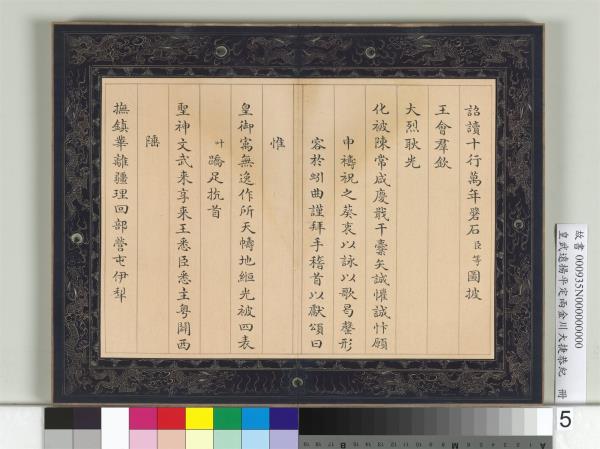 詔讀十行萬年磐石臣等圖披
王會羣欽
大烈耿光
化被陳常咸慶戢干櫜矢誠懽誠忭願
申禱祝之葵衷以詠以歌曷罄形
容於蚓曲謹拜手稽首以獻頌曰
惟
皇御寓無逸作所天幬地緪光被四表
叶蹻足抗首
聖神文武來享來王悉臣悉主粵闢西
陲
撫鎮羣離疆理回部營屯伊犁
故書 000935N000000000
皇武遠揚平定兩金川大捷恭紀 冊
5